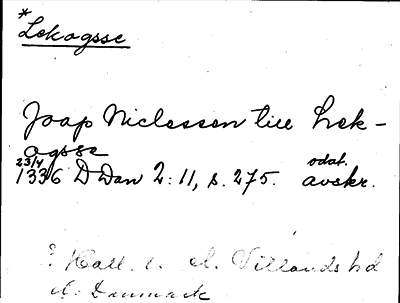 *
Lekagsse
Joap Niclessen till Lek-
agsse
23/4 odat.
1336 D Dan 2:11, s. 275. avskr.
? Hall. l. i Villands hd
i Danmark